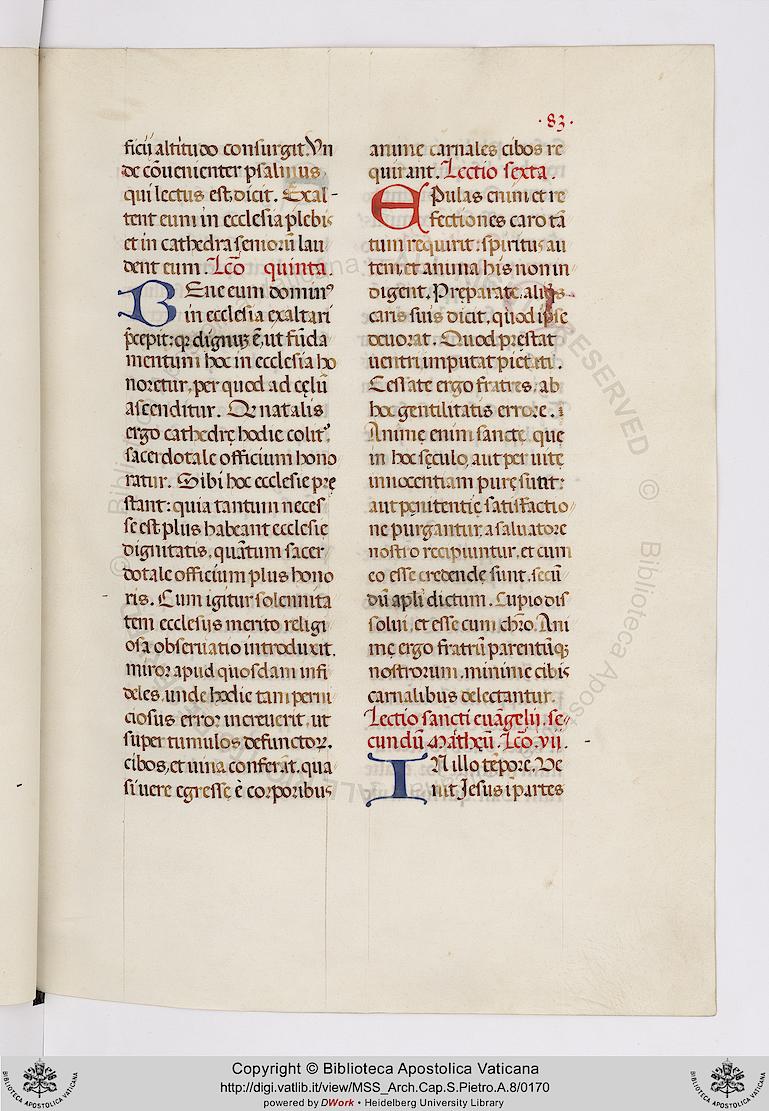 ·83·
ficij altitudo consurgit. Vn
de cōuenienter psalmus
qui lectus est, dicit. Exal-
tent eum in ecclesia plebis
et in cathedra seniorū lau
dent eum. Lcō quinta.
BEne eum dominꝰ
in ecclesia exaltari
p̄cepit: qꝛ dignuꝫ ē, ut fūda
mentum hoc in ecclesia ho
noretur, per quod ad cęlū
ascenditur. Qꝛ natalis
ergo cathedrę hodie colitꝰ.
sacerdotale officium hono
ratur. Sibi hoc ecclesie prę
stant: quia tantum neces
se est plus habeant ecclesie
dignitatis, quātum sacer
dotale officium plus hono
ris. Cum igitur solennita
tem ecclesus merito religi
osa obseruatio introduxit.
miror apud quosdam infi
deles, unde hodie tam perni
ciosus error increuerit, ut
super tumulos defunctoꝝ,
cibos, et uina conferāt. qua
si uere egresse ē corporibus
anime carnales cibos re
quirant. Lectio sexta.
EPulas enim et re
fectiones caro tā
tum requirit: spiritus au
tem, et anima his non in
digent. Pręparate, aliq̇s
caris suis dicit, quod ipse
deuorat. Quod pręstat
uentri, imputat pietati.
Cessate ergo fratres, ab
hoc gentilitatis errore.
Anime enim sancte, que
in hoc sęculo, aut per uite
innocentiam purę sunt:
aut pęnitentię satisfactio
ne purgantur, a saluatore
nostro recipiuntur, et cum
eo esse credendę sunt, secū
dū apli dictum. Cupio dis
solui, et esse cum chro. Ani
mę ergo fratrū parentūq;
nostrorum, minime cibis
carnalibus delectantur.
Lectio sancti euāgelij. se
cundū Mātheū. Lcō. vii.
IN illo tēpore, Ve
nit Jesus ī partes
Copyright © Biblioteca Apostolica Vaticana
http://digi.vatlib.it/view/MSS_Arch.Cap.S.Pietro.A.8/0170
powered by DWork • Heidelberg University Library